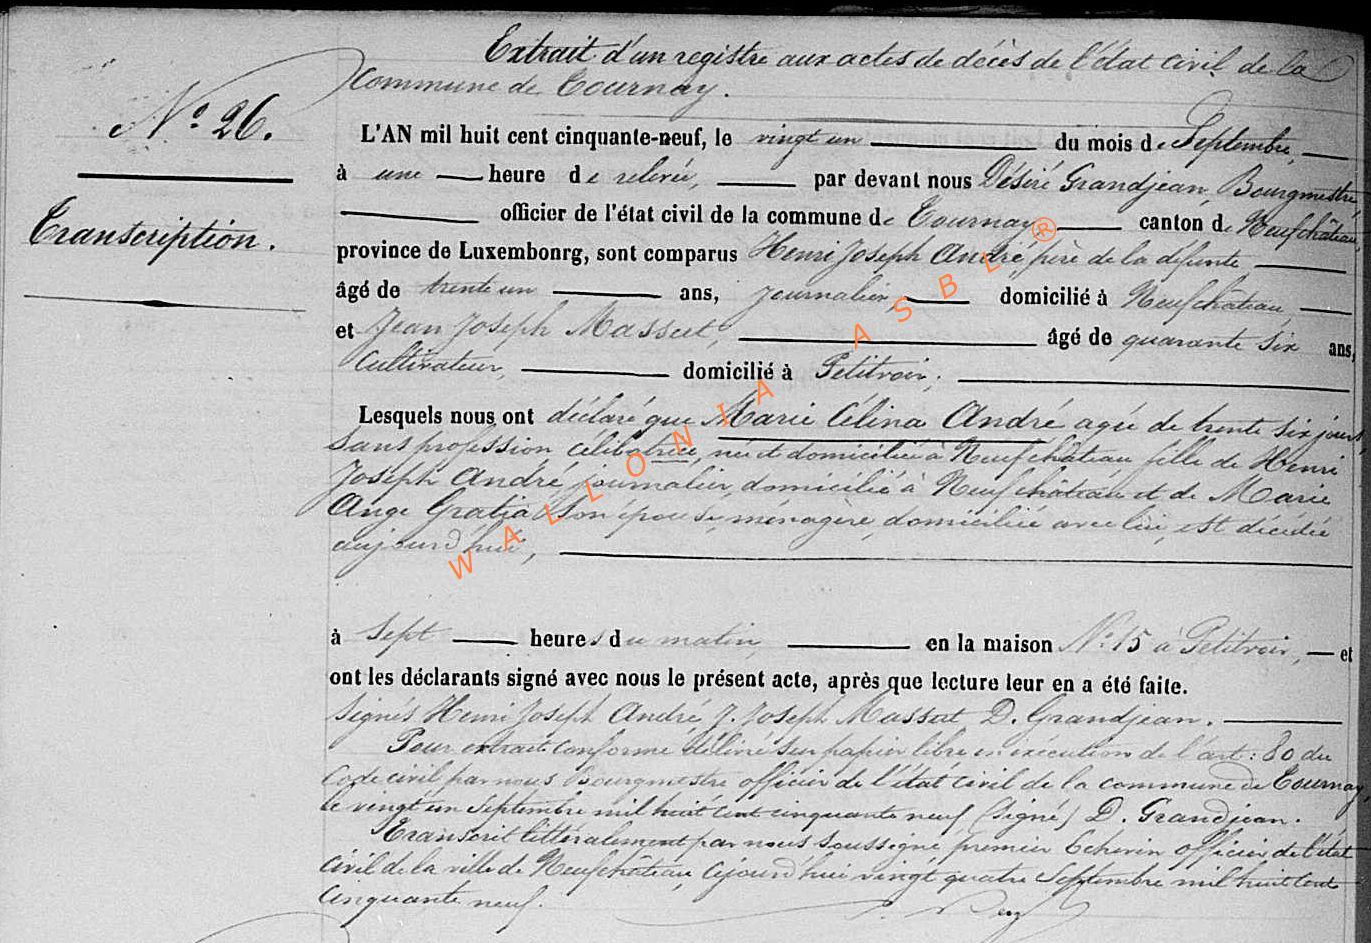 Extrait d'un registre aux actes de décès de l'état civil de la
commune de Tournay.
N° 26.
Transcription.
L'AN mil huit cent cinquante-neuf, le vingt un du mois de Septembre,
à une heure de relevée, par devant nous Désiré Grandjean, Bourgmestre,
officier de l'état civil de la commune de Tournay canton de Neufchâteau
province de Luxembonrg, sont comparus Henri Joseph André, père de la défunte,
âgé de trente un ans, journalier, domicilié à Neufchâteau,
et Jean Joseph Massut, âgé de quarante six ans,
cultivateur, domicilié à Petitvoir;
Lesquels nous ont déclaré que Marie Célina André agée de trente six jours,
sans profession célibatrice, née et domiciliée à Neufchâteau fille de Henri
Joseph André journalier, domicilié à Neufchâteau et de Marie
Ange Gratia son épouse, ménagère, domiciliée avec lui, est décédée
aujourd'hui,
à sept heures du matin, en la maison N° 15 à Petitvoir, et
ont les déclarants signé avec nous le présent acte, après que lecture leur en a été faite.
Signés Henri Joseph André, J. Joseph Massut D. Grandjean.
Pour extrait conforme délivré sur papier libre en exécution de l'art: 80 du
Code civil par nous Bourgmestre officier de l'état civil de la commune de Tournay,
le vingt un Septembre mil huit cent cinquante neuf (Signé) D. Grandjean.
Transcrit littéralement par nous soussigné premier Echevin officier de l'état
civil de la ville de Neufchâteau, cejourd'hui vingt quatre Septembre mil huit cent
cinquante neuf.
WALLONIA ASBL ®